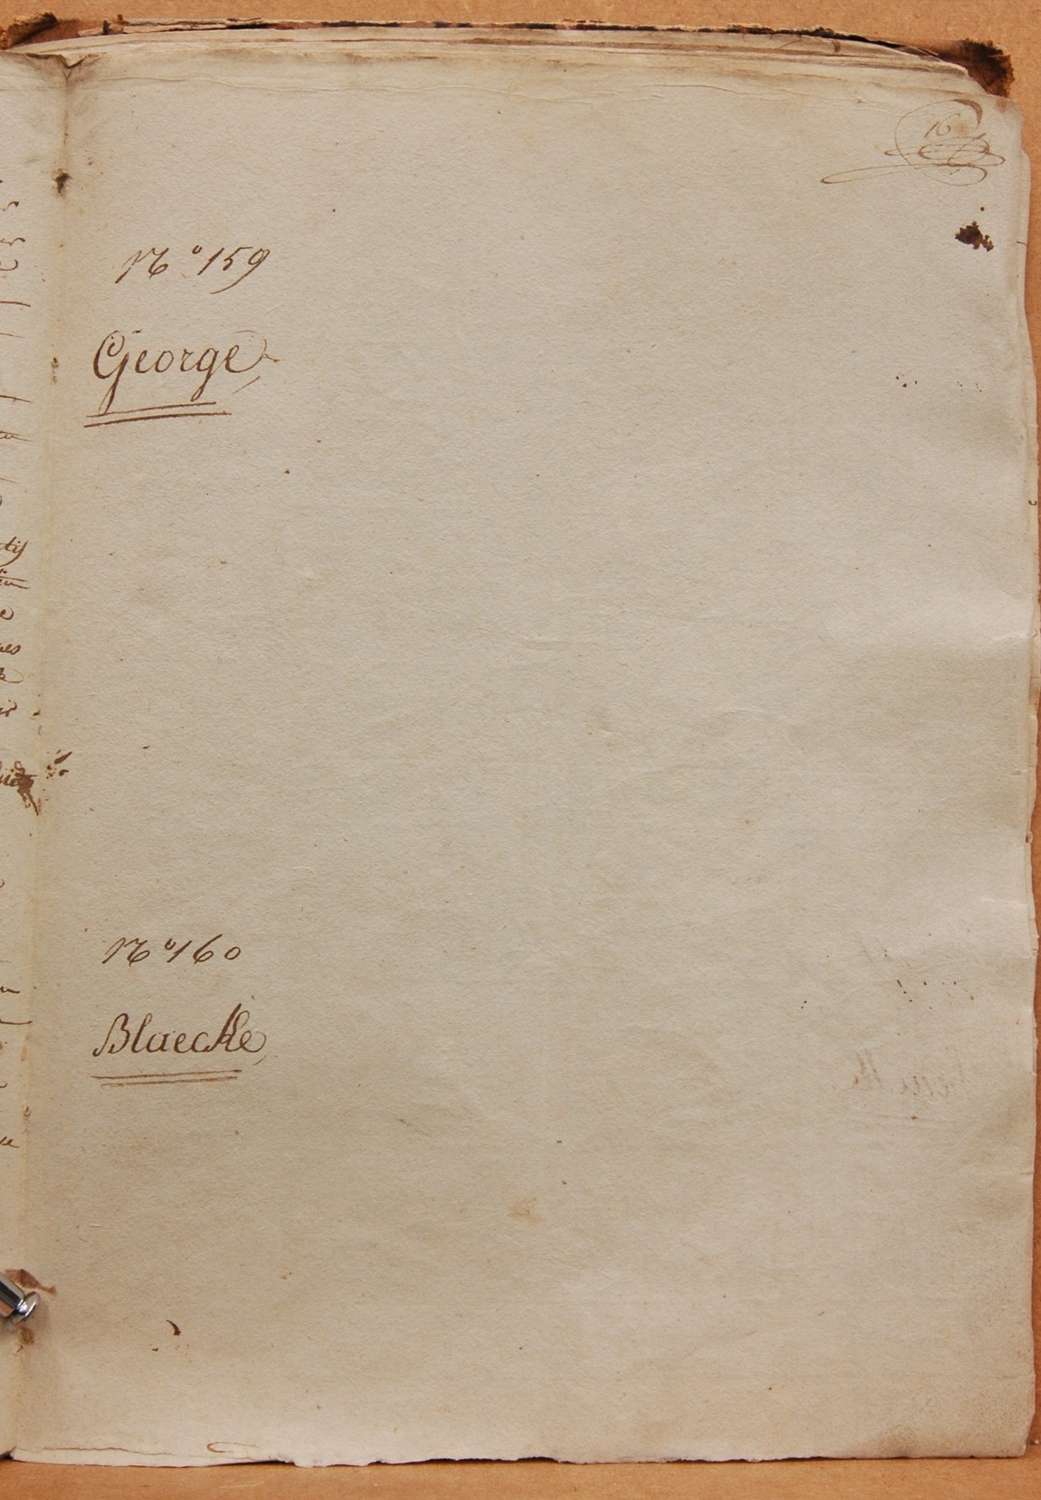 16
Nº 159
George
Nº 160
Blaecke